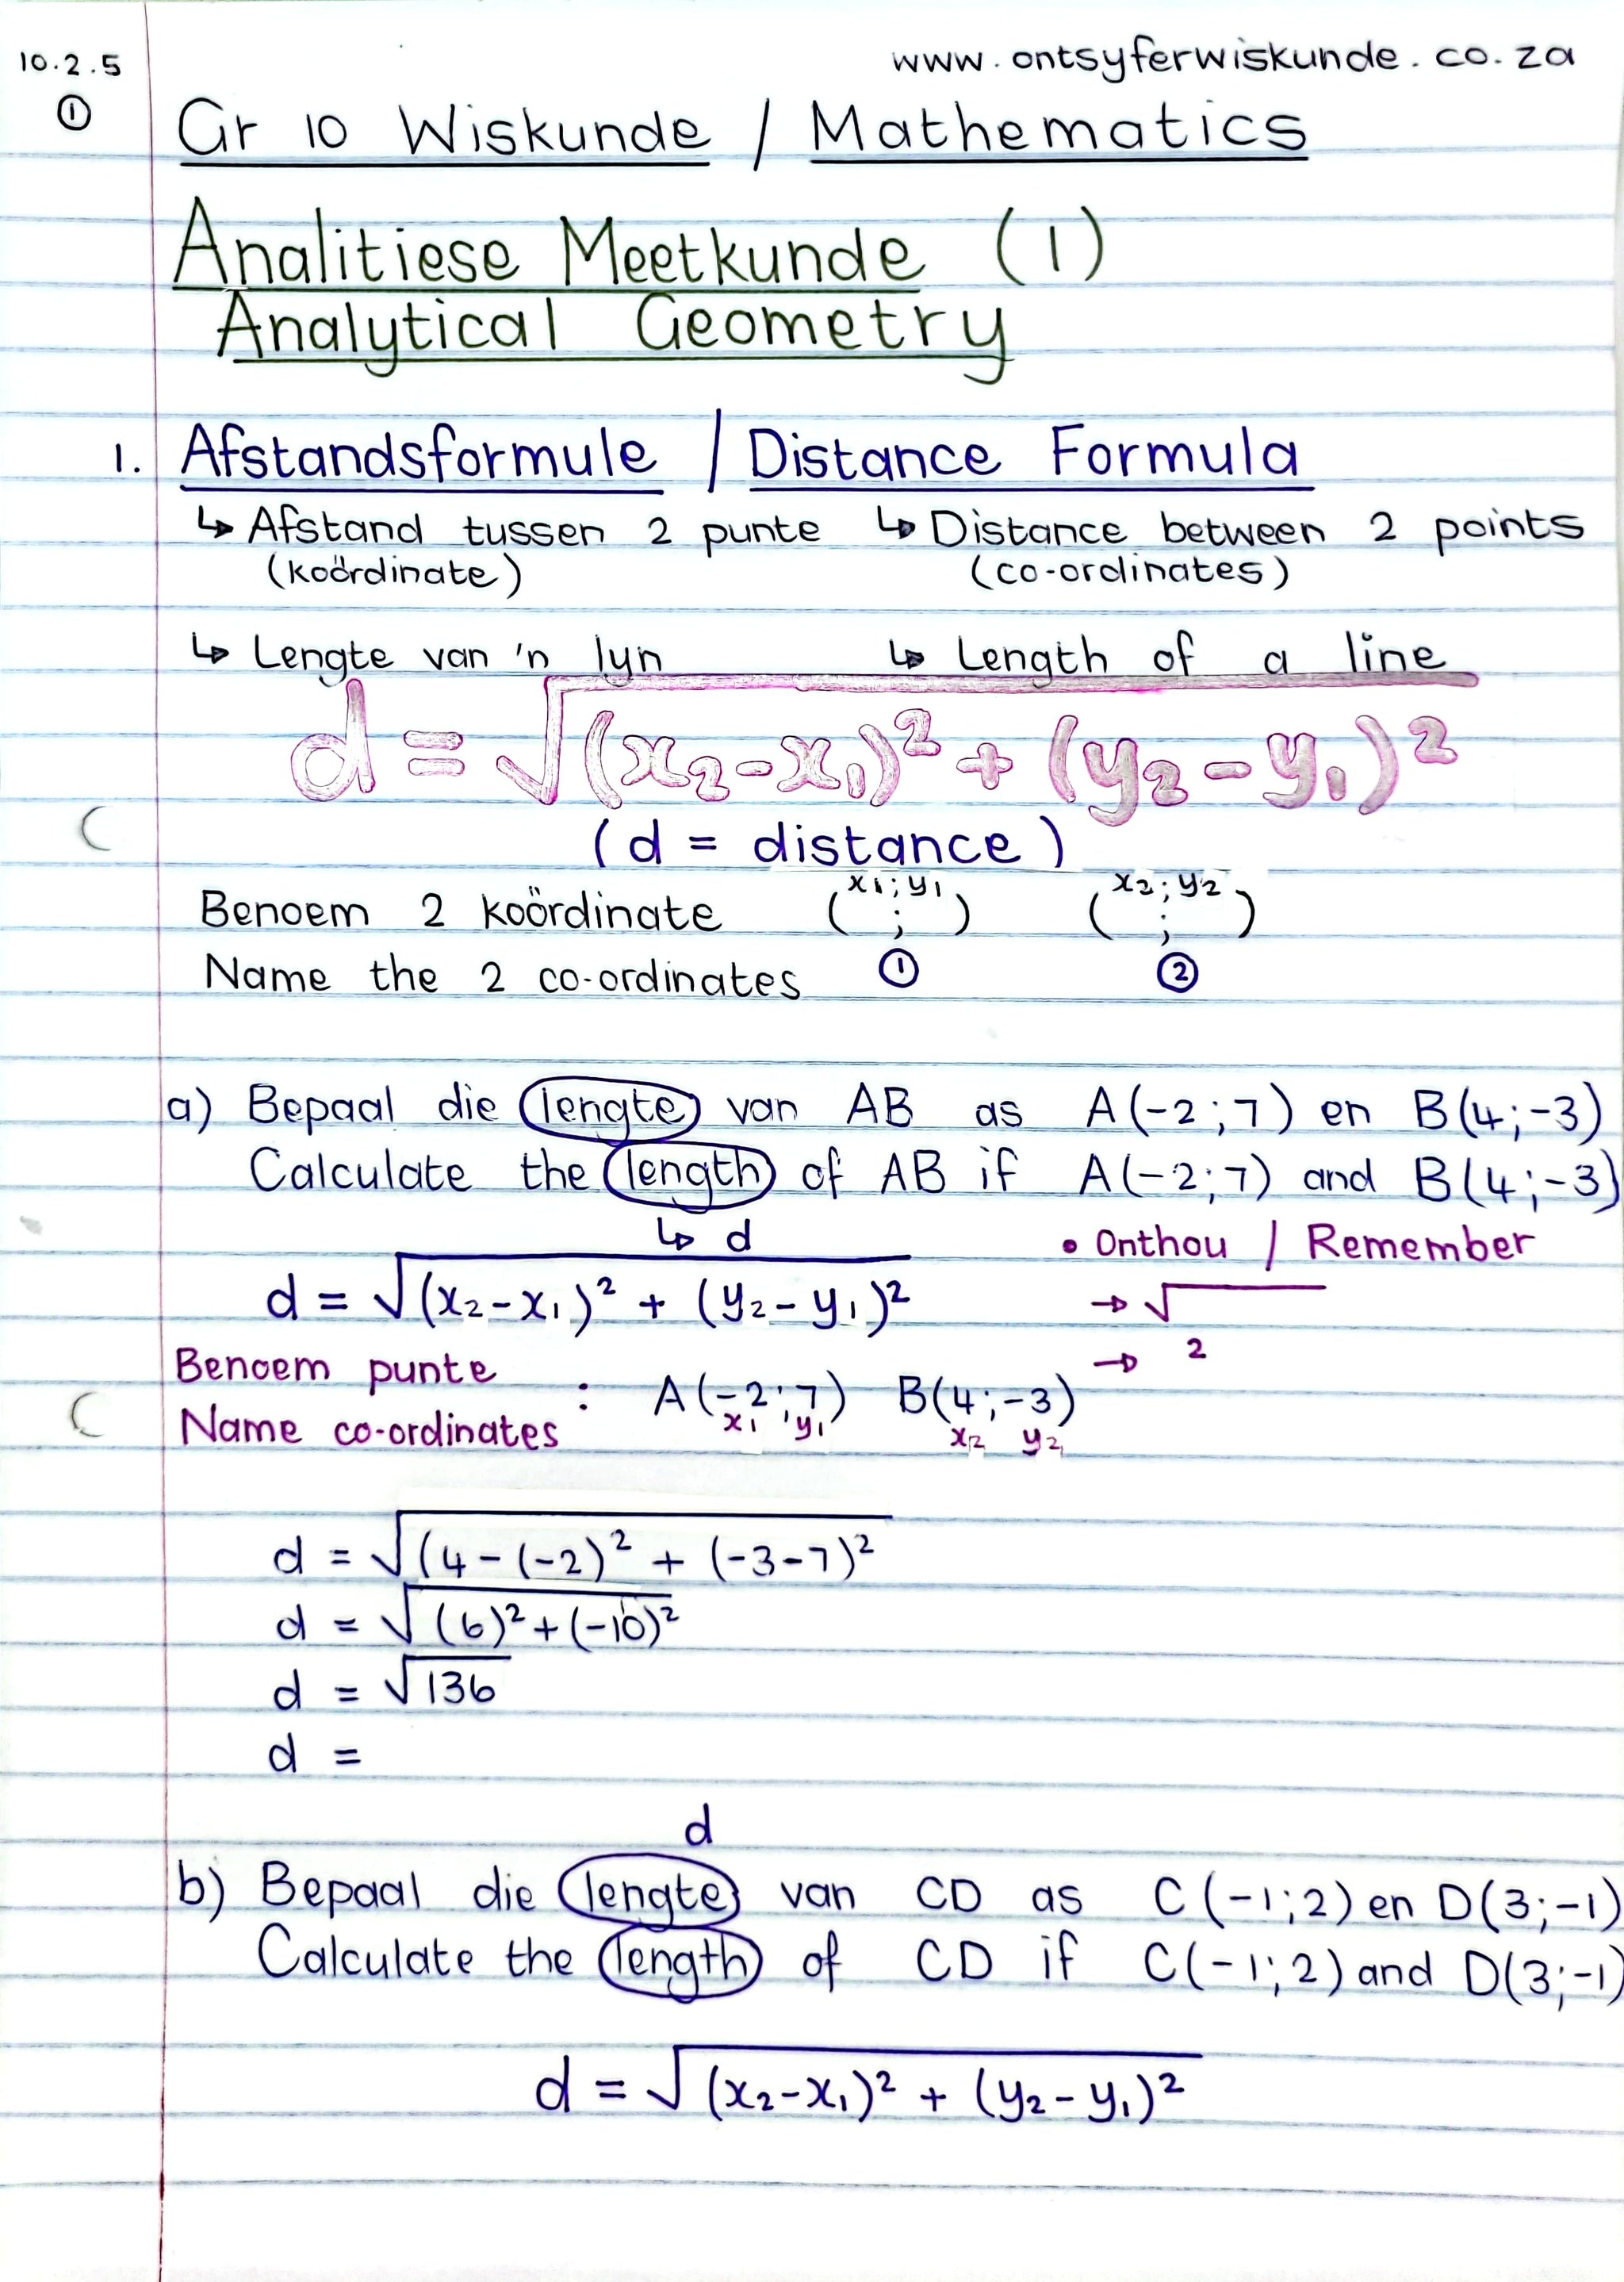 10.2.5
www.ontsyferwiskunde.co.za
①
Gr 10 Wiskunde / Mathematics
Analitiese Meetkunde (1)
Analytical Geometry
1. Afstandsformule / Distance Formula
↳ Afstand tussen 2 punte ↳ Distance between 2 points
(koördinate) (co-ordinates)
↳ Lengte van 'n lyn ↳ Length of a line
d = √(x₂-x₁)² + (y₂-y₁)²
(d = distance)
x₁;y₁ x₂;y₂
Benoem 2 koördinate ( ; ) ( ; )
Name the 2 co-ordinates ① ②
a) Bepaal die lengte van AB as A(-2;7) en B(4;-3)
Calculate the length of AB if A(-2;7) and B(4;-3)
↳ d • Onthou / Remember
d = √(x₂-x₁)² + (y₂-y₁)² → √
Benoem punte → ²
: A(-2;7) B(4;-3)
Name co-ordinates x₁ y₁ x₂ y₂
d = √(4-(-2)² + (-3-7)²
d = √(6)²+(-10)²
d = √136
d =
d
b) Bepaal die lengte van CD as C(-1;2) en D(3;-1)
Calculate the length of CD if C(-1;2) and D(3;-1)
d = √(x₂-x₁)² + (y₂-y₁)²